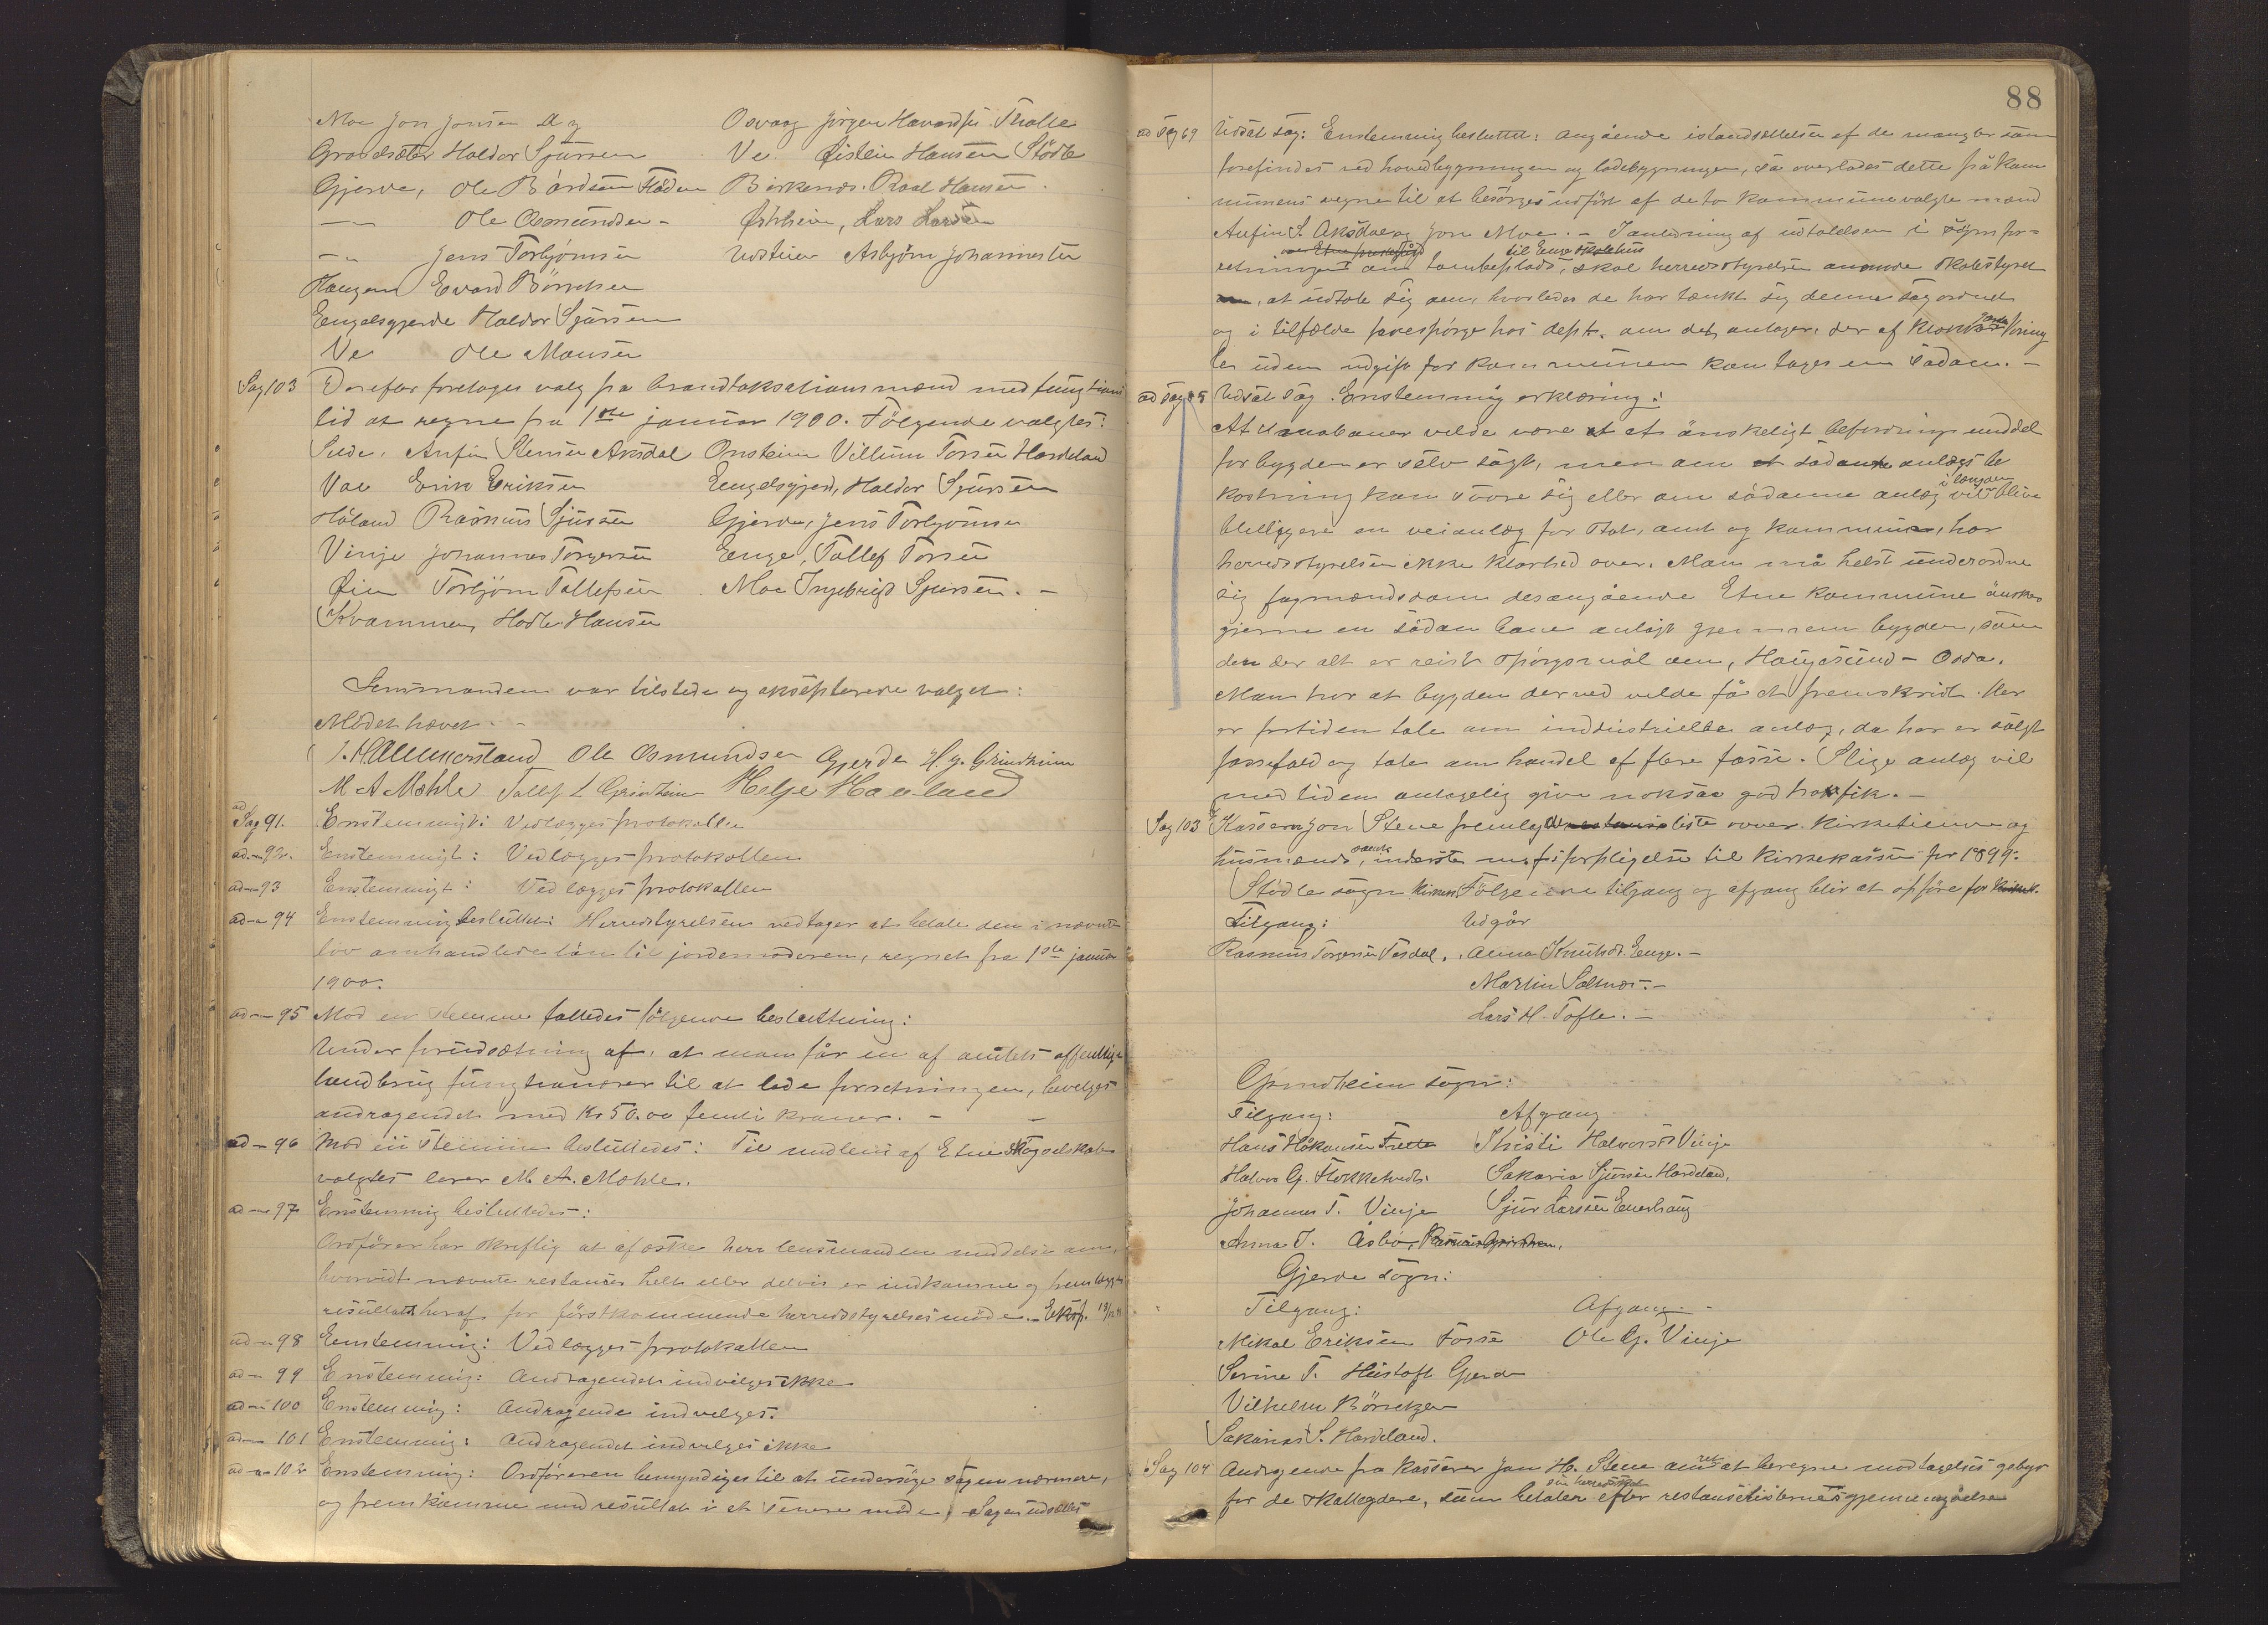 Moe Jon Jonsen Øy
Grovesæter Haldor Sjursen
Gjerde, Ole Bårdsen Fladen
— " — Ole Osmundsen —
— " — Jens Torbjørnsen
Haugen Evard Børretsen
Engelsgjerde Haldor Sjursen
Ve Ole Monsen
Osvaag Jørgen Havardsen Tralle
Ve Øistein Hansen Stødle
Birkenæs. Roal Hansen.
Østrheim, Lars Larsen
Ustvær Asbjørn Johannesen
Sag 103 Derefter foretoges valg på brandtakstationsmænd med fungtions
tid at regne fra 1ste januar 1900. Følgende valgtes:
Silde, Anfin Stensen Aksdal Onsteim Villum Torsen Hardeland
Vae Erik Eriksen Engelsgjerd, Haldor Sjursen
Håland Rasmus Sjursen Gjerde, Jens Torbjørnsen
Vinje Johannes Torgersen Enge, Tollef Torsen
Øien Torbjørn Tollefsen Moe Ingebrigt Sjursen. —
Kvammen, Hodle Hansen
Lensmanden var tilstede og aksepterede valget:
Mødet hævet. —
Ole Osmundsen Gjerde H. G. Grindheim
M A Mæhle Tollef L Grindheim Helge Haaland
ad Sag 91. Enstemmigt: Vedlægges protokollen
ad — 92. Enstemmigt: Vedlægges protokollen
ad — 93 Enstemmigt: Vedlægges protokollen
ad — 94 Enstemmig besluttet: Herredstyrelsen vedtager at betale den i nævnte
lov omhandlede løn til jordemoderen, regnet fra 1ste januar
1900.
ad — 95 Mod en stemme fattedes følgende beslutning:
Under forudsætning af, at man får en af amtets offentlige
landbrug fungtionærer til at lede forretningen, bevilges
andragendet med Kr 50.00 femti kroner. —
ad — 96 Mod èn stemme besluttedes: Til medlem af Etne skogselskab
valgtes lærer M. A. Mæhle.
ad — 97 Enstemmig besluttedes:
Ordfører har skriftlig at afæske herr lensmanden meddelse om,
hvorvidt nævnte restancer helt eller delvis er indkomne og fremlægge
resultatet heraf for førstkommende herredsstyrelsesmøde. — Eksp. 19/12 99
ad — 98 Eenstemmig: Vedlægges protokollen
ad — 99 Enstemmig: Andragendet indvilges ikke
ad — 100 Enstemmig: Andragende indvelges.
ad — 101 Enstemmig: Andragendet indvilges ikke
ad — 102 Enstemmig: Ordføreren bemyndiges til at undersøge sagen nærmere,
og fremkomme med resultat i et senere møde. Sagen udsættes
88
ad Sag 69 Udsat sag: Enstemmig besluttet: Angående istandsættelsen af de mangler som
forefindes ved hovedbygningen og ladebygningen, så overlades dette på kom
munens vegne til at besørges udført af de to kommunevalgte mænd
Anfin S. Aksdal og Jon Moe. — I anledning af udtalelsen i skjønsfor-
til Enge skolehus
retningen om tombeplads, skal herredsstyrelsen anmode skolestyret
, at udtale sig om, hvorledes de har tænkt sig denne sag ordnet
og i tilfælde forespørge hos dept. om det antager, der af kirkens jorde
les uden udgift for kommunen kan tages en sådan. —
ad Sag 85 Udsat sag. Enstemmig erklæring:
At en bane vilde være et af ønskeligt befordringsmiddel
for bygden er selv sagt, men om sådant anlægs be
kostning kan svare sig eller om sådanne anlæg i længden vil blive
billigere en veianlæg for stat, amt og kommune, har
herredsstyrelsen ikke klarhed over. Man må helst underordne
sig fagmændsdom desangående Etne kommune ønsker
gjerne en sådan bane anlagt gjennem bygden, som
den der alt er reist spørgsmål om, Haugesund — Odda.
Man tror at bygden derved vilde få et fremskridt. Her
er fortiden tale om industrielle anlæg, da her er solgt
fossefald og tale om handel af flere fosse. Slige anlæg vil
med tiden antagelig give noksaa god trafik. —
Sag 103 Kasserer Jon Stene fremlagde liste over kirketiende og
husmænds, samt inderster m. fl. forpligtelse til kirkekassen for 1899.
Stødle sogn kirkes Følgende tilgang og afgang blir at opføre for
Tilgang: Udgår
Rasmus Torgersen Tesdal. Anna Knutsdt Enge. —
Martin Saltnes. —
Lars H. Tofte. —
Grindheim sogn:
Tilgang: Afgang
Hans Håkonsen Frette Kristi Halvorsdt Vinje
Halvor G. Flokketvedt. Sakaria Sjursen Hardeland,
Johannes T. Vinje Sjur Larssen Ennerhaug
Anna J. Åsbø, Rasmus Grindheim.
Gjerde sogn:
Tilgang: Afgang —
Mikal Eriksen Fosse Ole G. Vinje
Serine T. Hustoft Gjerde
Vilhelm Børretzen
Sakarias S. Hardeland.
Sag 104 Andragende fra kasserer Jon H. Stene om ret at beregne modtagelses gebyr
for de skatteydere, som betaler sin herredsskat efter restancelisternes gjennemgåelse